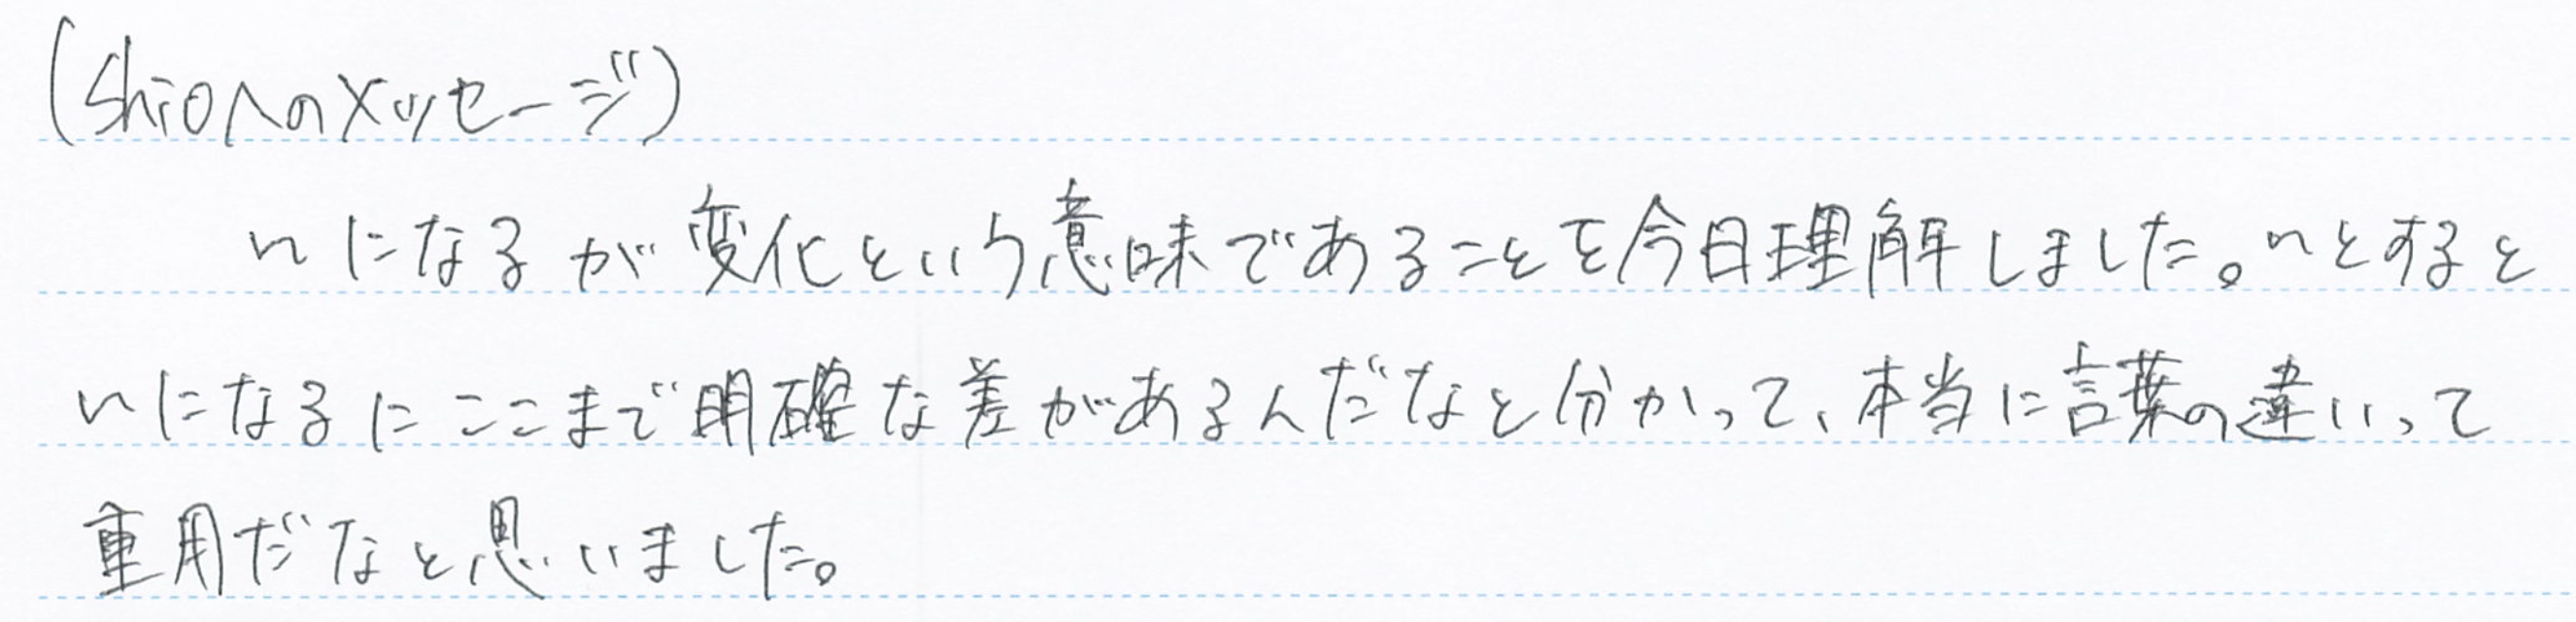 (shioへのメッセージ)
〜になるが変化という意味であることを今日理解しました。〜とすると
〜になるにここまで明確な差があるんだなと分かって、本当に言葉の違いって
重用だなと思いました。